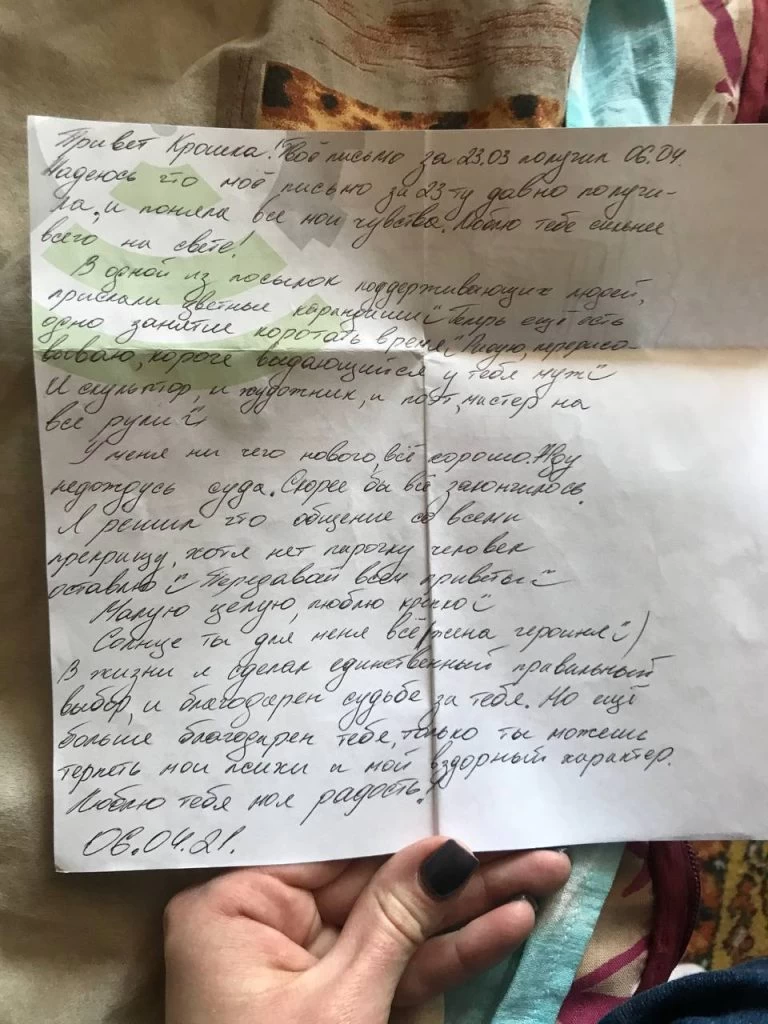 Привет Крошка! Твоё письмо за 23.03 получил 06.04.
Надеюсь что моё письмо за 23-ту давно получи-
ла, и поняла все мои чувства. Люблю тебе сильнее
всего на свете!
В одной из посылок поддерживающих людей,
прислали цветные карандаши Теперь ещё есть
одно занятие коротать время Рисую, перерисо-
вываю, короче выдающийся у тебя муж
И скульптор, и художник, и поэт, мастер на
все руки
У меня ни чего нового, всё хорошо. Жду
недождусь суда. Скорее бы всё закончилось.
Я решил что общение со всеми
прекращу, хотя нет парочку человек
оставлю Передавай всем приветы
Малую целую, люблю крепко
Солнце ты для меня всё, жена героиня )
В жизни я сделал единственный правильный
выбор, и благодарен судьбе за тебя. Но ещё
больше благодарен тебе, только ты можешь
терпеть мои психи и мой вздорный характер.
Люблю тебя моя радость!
06.04.21.